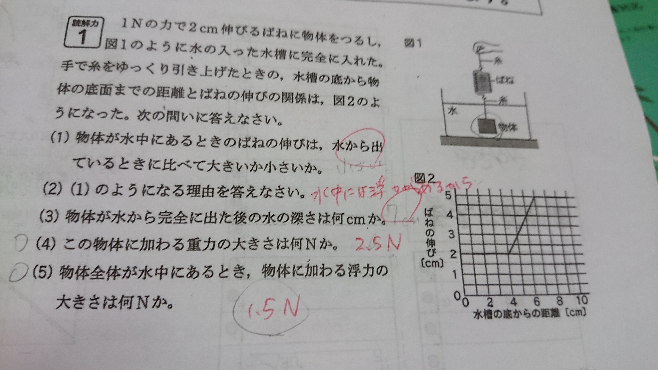 読解力
1
1Nの力で2cm伸びるばねに物体をつるし,
図1のように水の入った水槽に完全に入れた。
手で糸をゆっくり引き上げたときの, 水槽の底から物
体の底面までの距離とばねの伸びの関係は, 図2のよ
うになった。次の問いに答えなさい。
(1) 物体が水中にあるときのばねの伸びは, 水から出
ているときに比べて大きいか小さいか。
(2) (1)のようになる理由を答えなさい。
(3) 物体が水から完全に出た後の水の深さは何cmか。
(4) この物体に加わる重力の大きさは何Nか。 2.5N
(5) 物体全体が水中にあるとき, 物体に加わる浮力の
大きさは何Nか。
1.5N
図1
糸
ばね
糸
水
物体
図2
ばねの伸び
〔cm〕
5
4
3
2
1
0
0 2 4 6 8 10
水槽の底からの距離〔cm〕